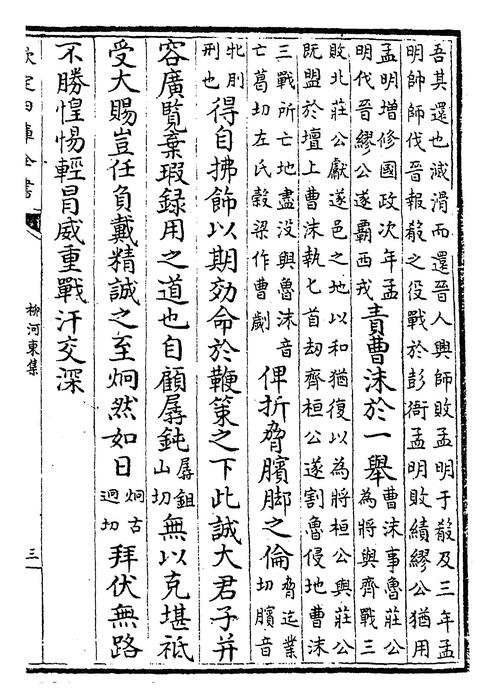 吾其還也滅滑而還晉人興師敗孟明于殽及三年孟
明帥師伐晉報殽之役戰於彭衙孟明敗績繆公猶用
孟明增修國政次年孟明伐晉繆公遂霸西戎責曹沫於一舉曹沫事魯莊公為將與齊戰三
敗北莊公獻遂邑之地以和猶復以為將桓公與莊公
既盟於壇上曹沫執匕首劫齊桓公遂割魯侵地曹沫
三戰所亡地盡没與魯沫音亡葛切左氏穀梁作曹劌俾折脅臏脚之倫脅迄業切臏音
牝則刑也得自拂飾以期効命於鞭策之下此誠大君子并
容廣覽棄瑕録用之道也自顧孱鈍孱鉏山切無以克堪祗
受大賜豈任負戴精誠之至炯然如日炯古迥切拜伏無路
不勝惶惕輕冒威重戰汗交深
欽定四庫全書
柳河東集
三